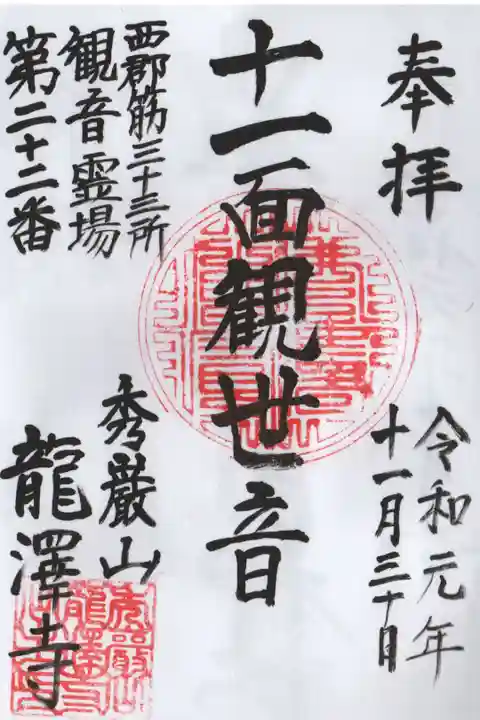 奉拝
令和元年
十一月三十日
十一面観世音
西郡筋三十三所
観音霊場
第二十二番
秀巌山
龍澤寺